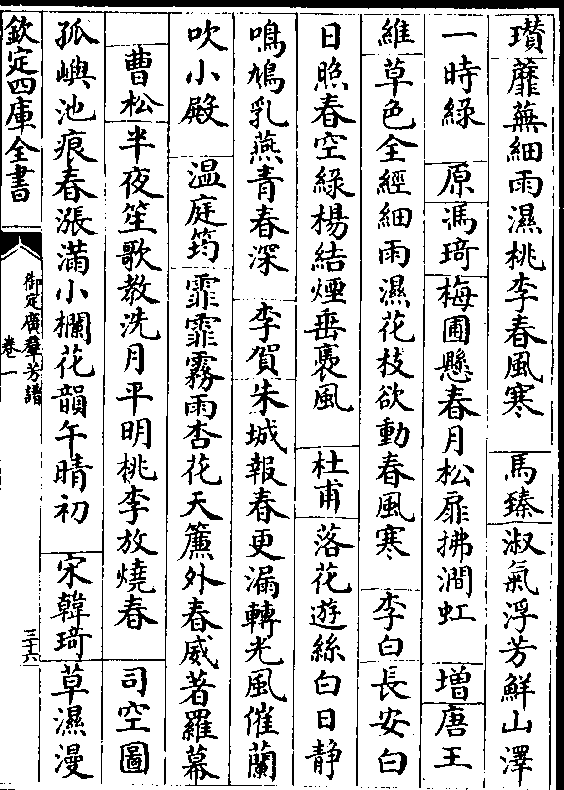 瓚蘼蕪細雨濕桃李春風寒　馬臻淑氣浮芳鮮山澤
一時綠　原馮琦梅圃懸春月松扉拂澗虹　增唐王
維草色全經細雨濕花枝欲動春風寒　李白長安白
日照春空綠楊結煙垂裊風　杜甫落花遊絲白日静
鳴鳩乳燕青春深　李賀朱城報春更漏轉光風催蘭
吹小殿　温庭筠霏霏霧雨杏花天簾外春威著羅幕
曹松半夜笙歌教洗月平明桃李放燒春　司空圖
孤嶼池痕春漲滿小欄花韻午晴初　宋韓琦草濕漫
欽定四庫全書
御定廣羣芳譜
卷一
三十六